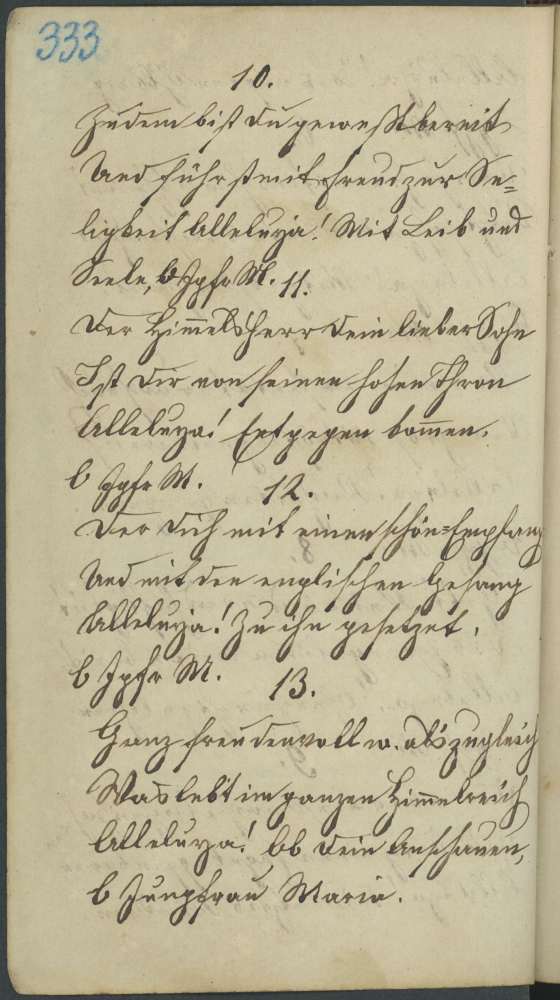 333
10.
Zudem bist du gewesst bereit
Und fuhrst mit Freud zur Se=
ligkeit Alleluja! Mit Leib und
Seele, O Jgfr M. 11.
Der Him̄elsherr dein lieber Sohn
Ist dir von seinen hohen Thron
Alleluya! Entgegen kom̄en.
O Jgfr M. 12.
Der dich mit einen schön=Empfang
Und mit den englischen Gesang
Alleluja! Zu ihn gesetzet.
O Jgfr M. 13.
Ganz freudenvoll w. als zugleich
Was lebt im ganzen Him̄elreich
Alleluya! Ob dein Anschauen,
O Jungfrau Maria.